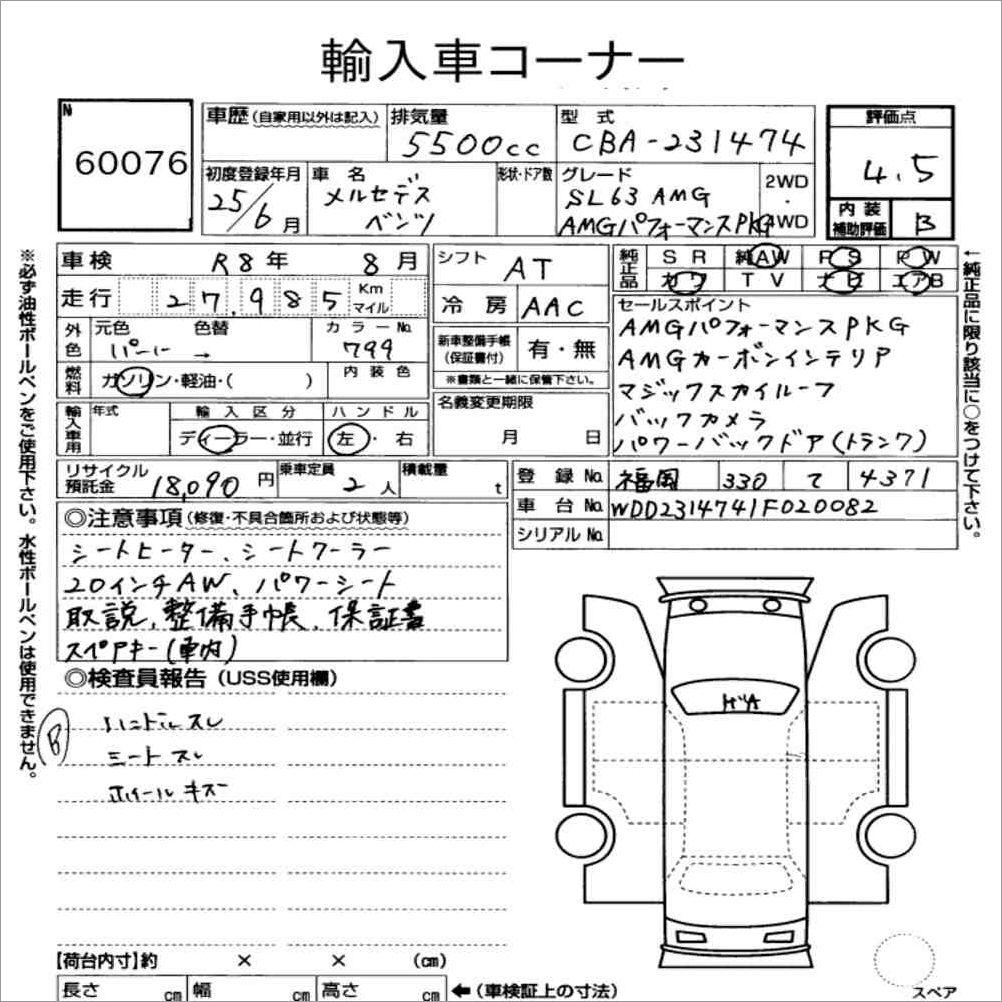 輸入車コーナー
N
60076
車歴 (自家用以外は記入)
排気量
5500cc
型式
CBA-231474
評価点
4.5
初度登録年月
25/6月
車名
メルセデス
ベンツ
形状・ドア数
グレード
SL63 AMG
AMGパフォーマンスPKG
2WD
・
4WD
内装
補助評価
B
※必ず油性ボールペンをご使用下さい。水性ボールペンは使用できません。
←純正品に限り該当に○をつけて下さい。
車検 R8年 8月
走行 27,985 Km
マイル
外色
元色 色替
パール →
カラーNo.
799
燃料
ガソリン・軽油・( )
内装色
輸入車用
年式
輸入区分
ディーラー・並行
ハンドル
左・右
リサイクル
預託金
18,090円
乗車定員
2人
積載量
t
シフト AT
冷房 AAC
新車整備手帳
(保証書付)
有・無
※書類と一緒に保管下さい。
名義変更期限
月 日
純正品
SR 純AW PS PW
カワ TV ナビ エアB
セールスポイント
AMGパフォーマンスPKG
AMGカーボンインテリア
マジックスカイルーフ
バックカメラ
パワーバックドア(トランク)
登録No. 福岡 330 て 4371
車台No. WDD2314741F020082
シリアルNo.
◎注意事項 (修復・不具合箇所および状態等)
シートヒーター、シートクーラー
20インチAW、パワーシート
取説、整備手帳、保証書
スペアキー(車内)
◎検査員報告 (USS使用欄)
B
ハンドルスレ
シートスレ
ホイールキズ
ガA
【荷台内寸】約 × × (cm)
長さ cm 幅 cm 高さ cm ←(車検証上の寸法)
スペア